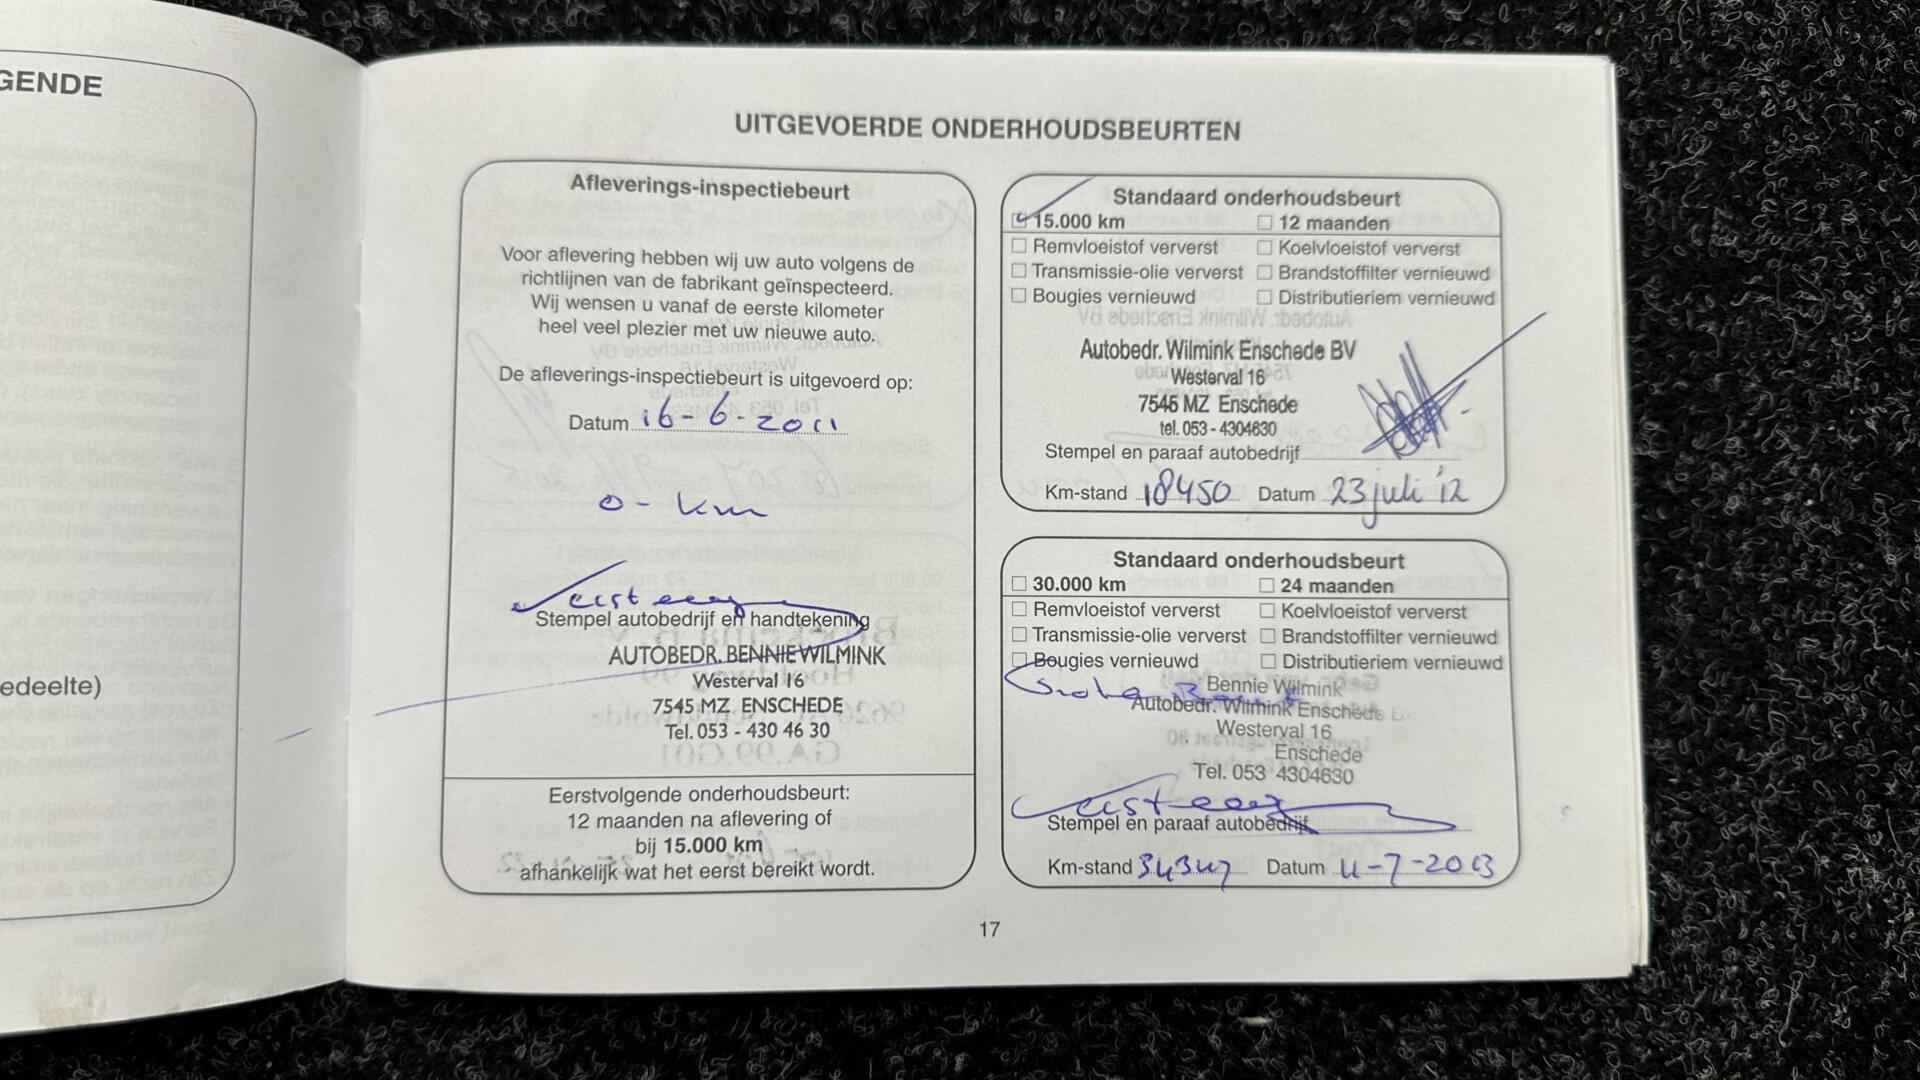 GENDE
edeelte)
UITGEVOERDE ONDERHOUDSBEURTEN
Afleverings-inspectiebeurt
Voor aflevering hebben wij uw auto volgens de
richtlijnen van de fabrikant geïnspecteerd.
Wij wensen u vanaf de eerste kilometer
heel veel plezier met uw nieuwe auto.
De afleverings-inspectiebeurt is uitgevoerd op:
Datum 16-6-2011
0 - km
Stempel autobedrijf en handtekening
AUTOBEDR. BENNIE WILMINK
Westerval 16
7545 MZ ENSCHEDE
Tel. 053 - 430 46 30
Eerstvolgende onderhoudsbeurt:
12 maanden na aflevering of
bij 15.000 km
afhankelijk wat het eerst bereikt wordt.
Standaard onderhoudsbeurt
15.000 km 12 maanden
Remvloeistof ververst Koelvloeistof ververst
Transmissie-olie ververst Brandstoffilter vernieuwd
Bougies vernieuwd Distributieriem vernieuwd
Autobedr. Wilmink Enschede BV
Westerval 16
7545 MZ Enschede
tel. 053 - 4304630
Stempel en paraaf autobedrijf
Km-stand 18450 Datum 23 juli '12
Standaard onderhoudsbeurt
30.000 km 24 maanden
Remvloeistof ververst Koelvloeistof ververst
Transmissie-olie ververst Brandstoffilter vernieuwd
Bougies vernieuwd Distributieriem vernieuwd
Bennie Wilmink
Autobedr. Wilmink Enschede
Westerval 16
Enschede
Tel. 053 4304630
Stempel en paraaf autobedrijf
Km-stand 34347 Datum 11-7-2013
17